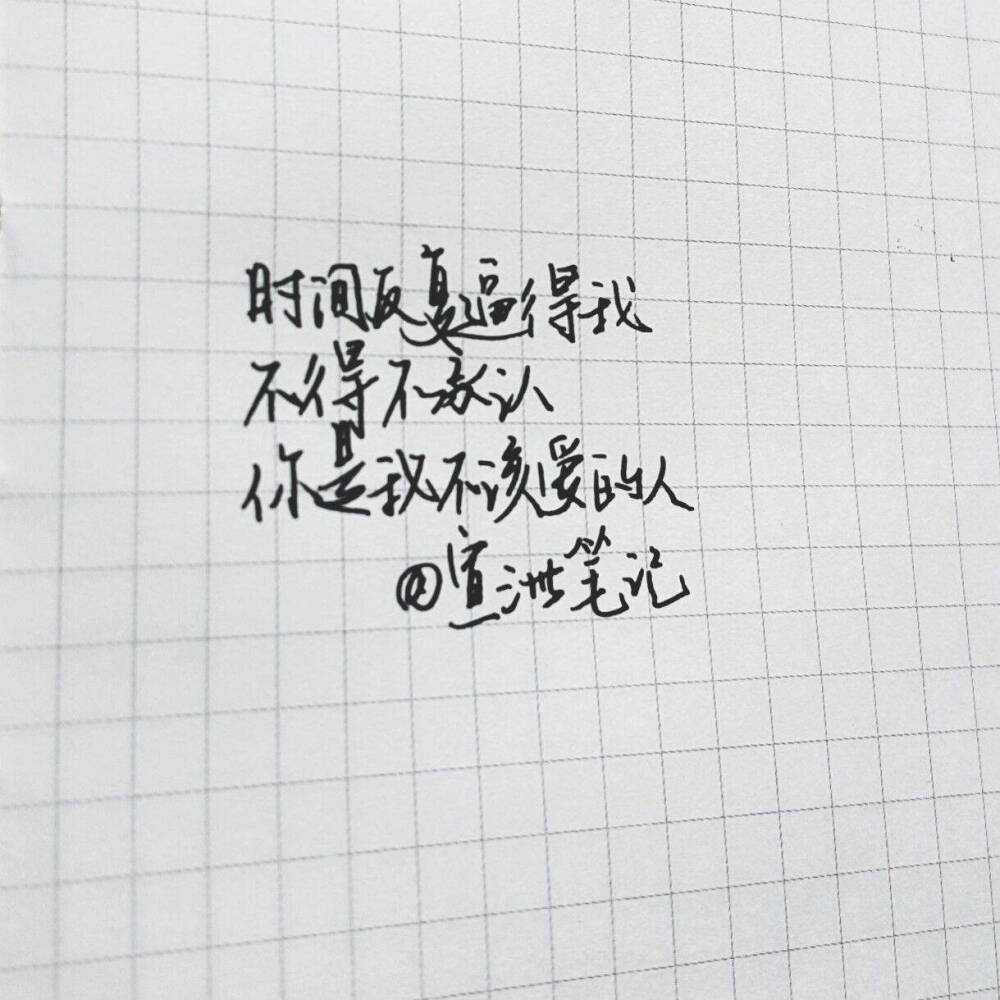 时间反复逼得我
不得不承认
你是我不该爱的人
@宣洲笔记